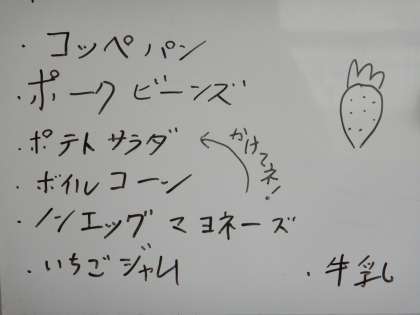 ・コッペパン
・ポークビーンズ
・ポテトサラダ
かけてネ!
・ボイルコーン
・ノンエッグマヨネーズ
・いちごジャム
・牛乳